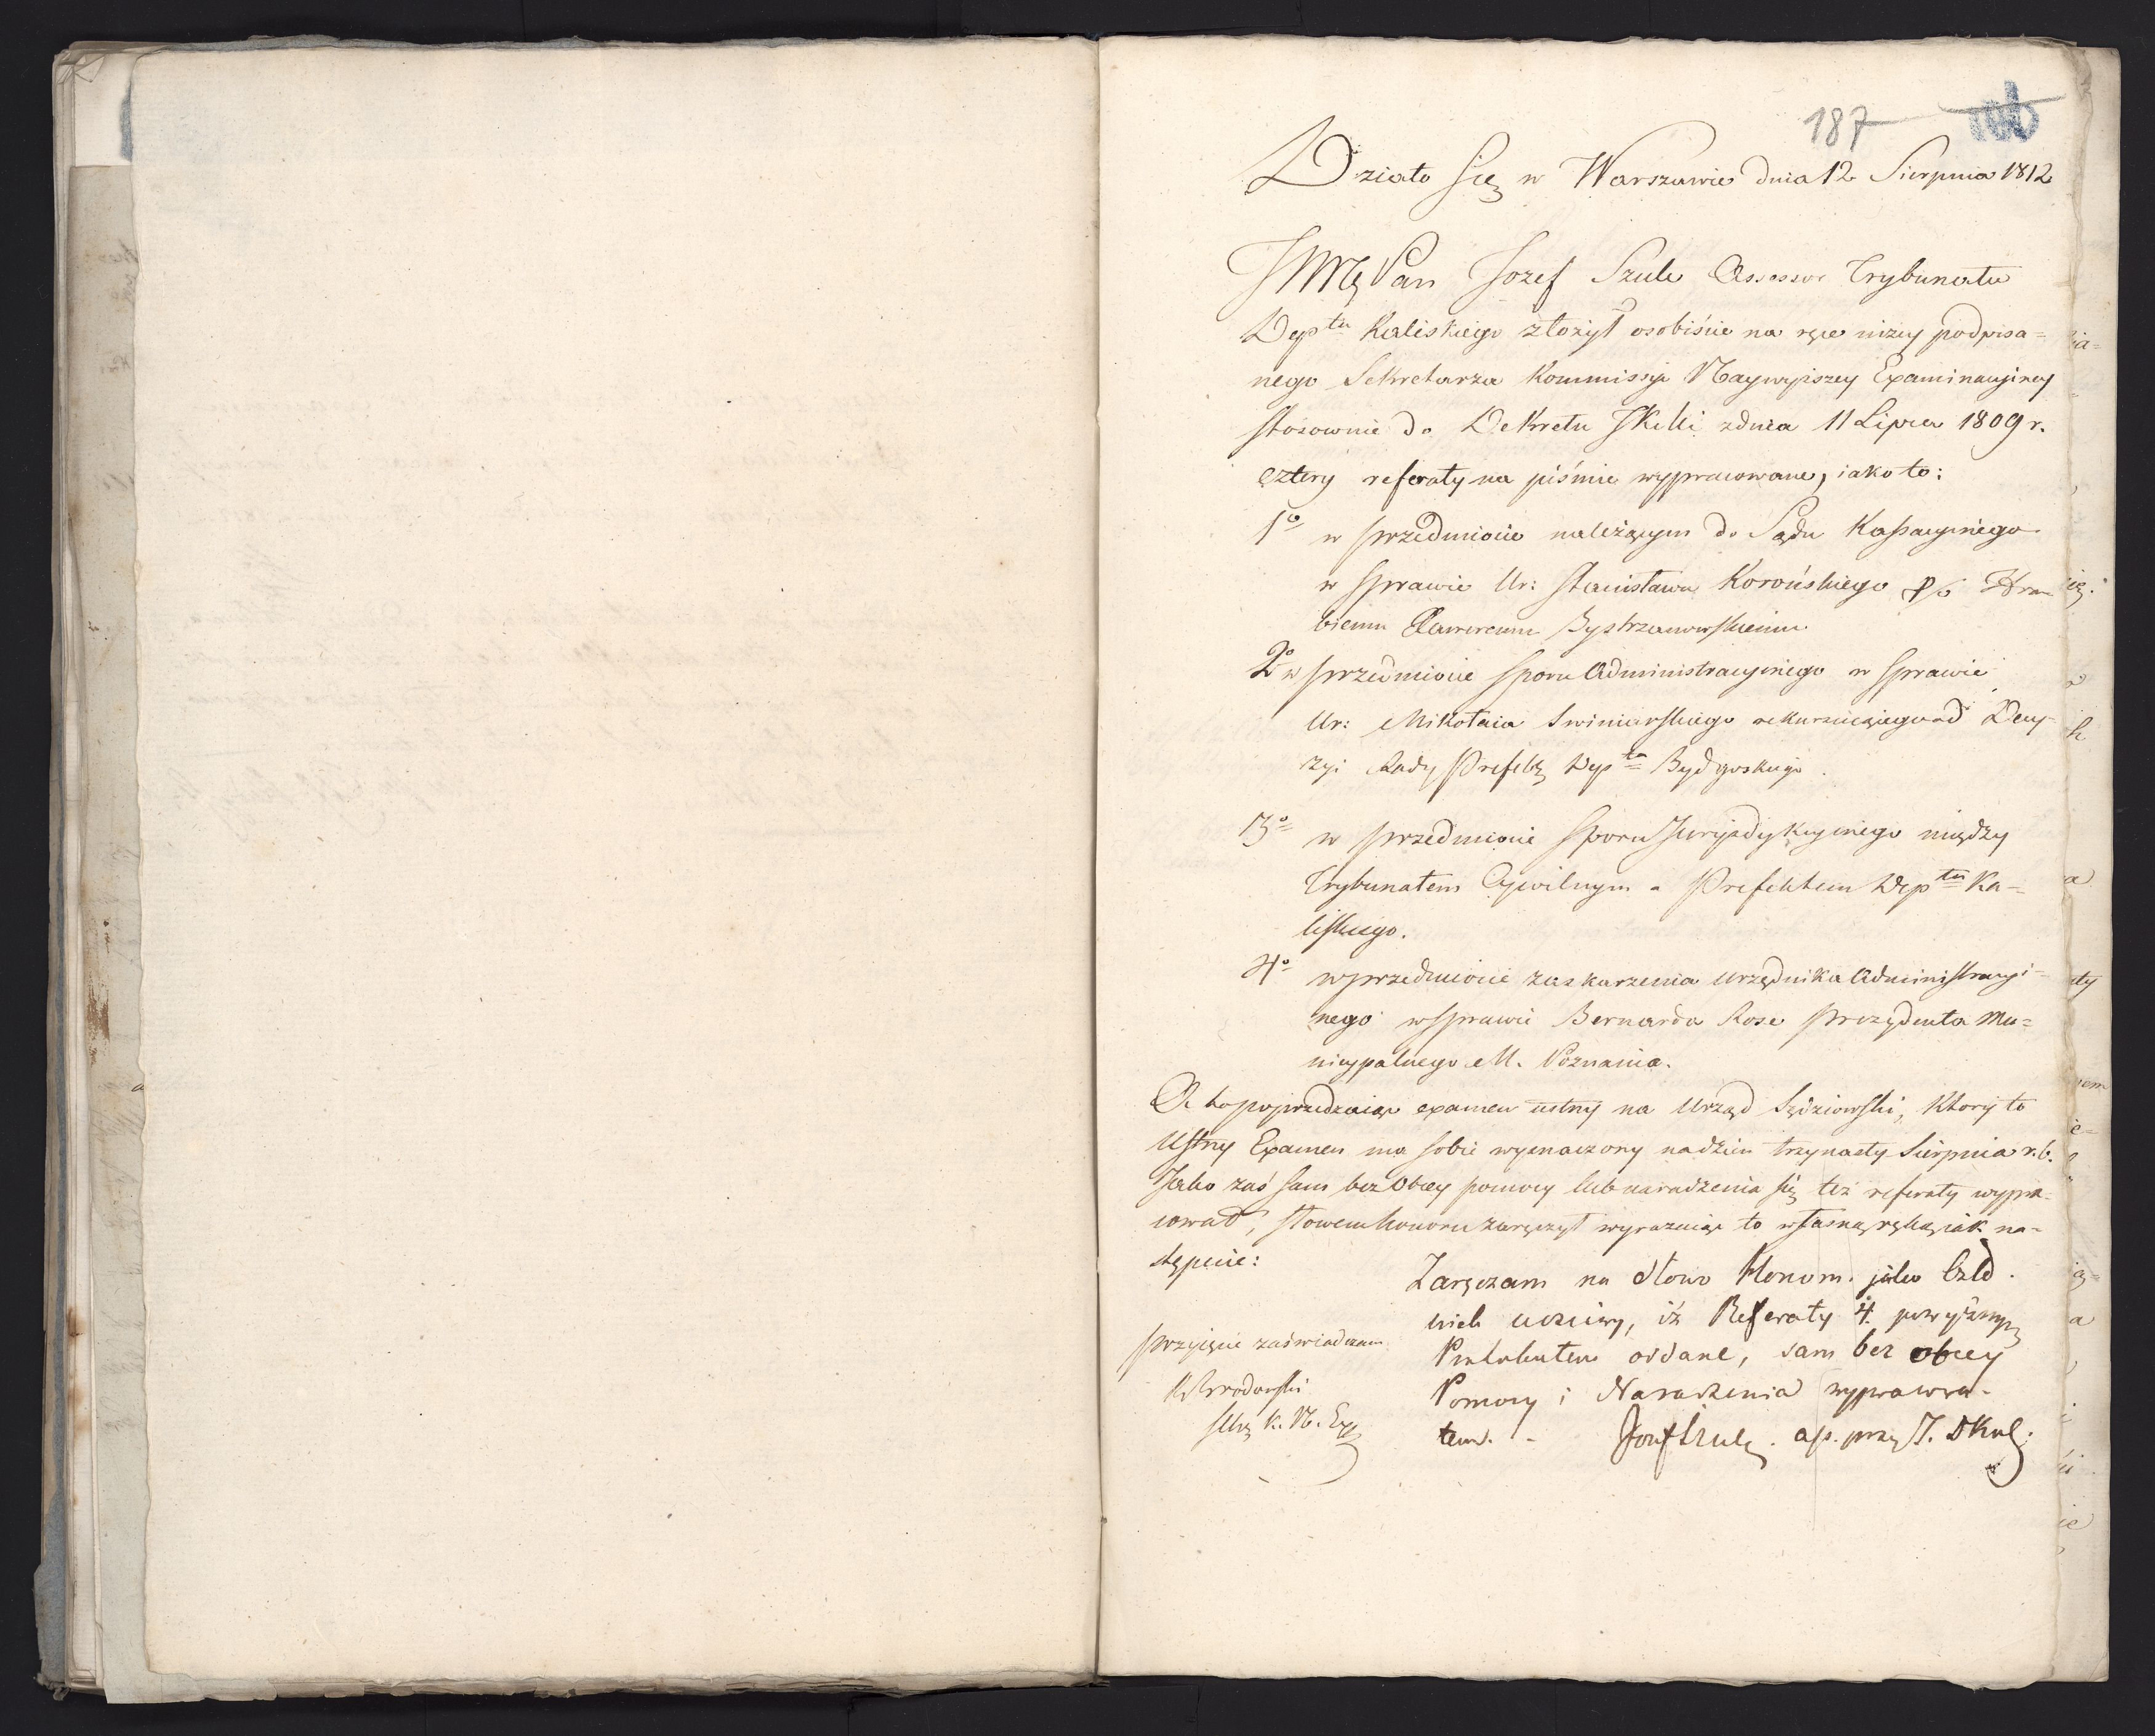 187
Działo się w Warszawie dnia 12 Sierpnia 1812
JMć Pan Jozef Szulc Assessor Trybunału
Dep<sup>tu</sup> Kaliskiego złożył osobiście na ręce niżey podpisa=
nego Sekretarza Kommissyi Naywyższey Examinacyiney
stosownie do Dekretu JKMci z dnia 11 Lipca 1809 r.
cztery referaty na piśmie wypracowane, iako to:
1º w przedmiocie należącym do Sądu Kassacyinego
w sprawie Ur: Stanisława Korońskiego Hra=
biemu Xaweremu Bystrzanowskiemu
2º w przedmiocie sporu Administracyinego w sprawie
Ur: Mikołaia Swiniarskiego rekuruiącego od Decy=
zyi Rady Prefek: Dep<sup>tu</sup> Bydgoskiego.
3º w przedmiocie sporu Juryzdykcyinego między
Trybunałem Cywilnym a Prefektem Dep<sup>tu</sup> Ka=
liskiego.
4º w przedmiocie zaskarzenia Urzędnika Administracyi=
nego w sprawie Bernarda Rose Prezydenta Mu=
nicypalnego M. Poznania.
A to poprzedzaiąc examen ustny na Urząd Sędziowski, ktory to
Ustny Examen ma sobie wyznaczony na dzien trzynasty Sierpnia r. b.
Jako zaś sam bez obcey pomocy lub naradzenia się też referaty wypra=
cował, słowem honoru zaręczył wyrażaiąc to własną ręką iak na=
stępuie:
Zaręczam na słowo Honoru jako Czło=
wiek uczciwy, iż Referaty 4. powyższym
Protokułem oddane, sam bez obcey
Pomocy i Naradzenia wypracowa=
łem. - Jozef Szulc. ass. przy T. D Kal:
Przyięcie zaświadczam
Brodowski
Sekr: K. N. Ex: